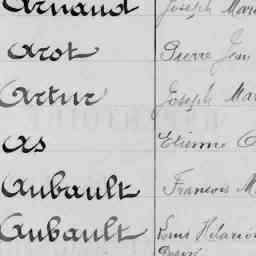 Arnaud Joseph Mari
Arot Pierre Jean
Artur Joseph Mar
As Etienne
Aubault Francois M
Aubault Louis Hilarion
Désiré